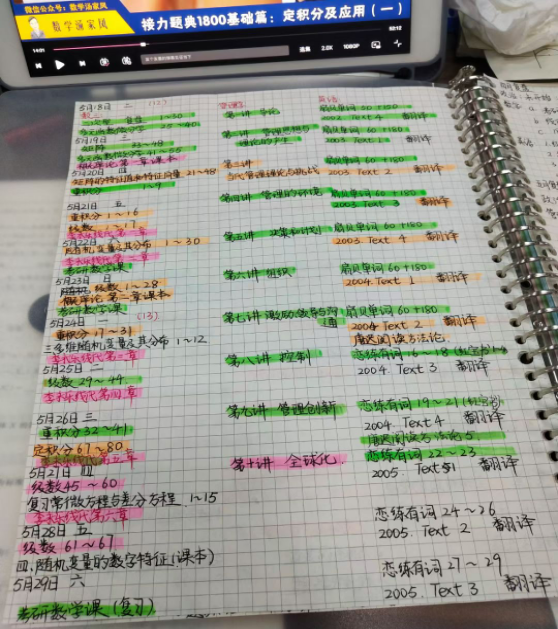 微信公众号：数学汤家凤
数学汤家凤
接力题典1800基础篇：定积分及应用（一）
14:01
选集 2.0X 1080P
5月18日 二 (12)
数学三 管综 英语
二次型 1~30 第一讲 导论 扇贝单词 60+180
多元函数微分学 25~40 2002. Text 4 翻译
5月19日 三 第二讲 管理思想与 扇贝单词 60+180
矩阵 33~48 理论的产生 2003. Text 1 翻译
多元函数微分学 41~55
概率论 第一章课本 第三讲 扇贝单词 60+180
5月20日 四 当代管理理论与挑战 2003 Text 2 翻译
矩阵的特征值和特征向量 21~48
重积分 1~9 第四讲 管理的环境 扇贝单词 60+180
2003. Text 3 翻译
5月21日 五
重积分 1~16 第五讲 决策和计划 扇贝单词 60+180
级数 1~17 2003. Text 4 翻译
李永乐线代第一章
5月22日 第六讲 组织 扇贝单词 60+180
随机变量及其分布 1~30 2004. Text 1 翻译
李永乐线代第二章
考研数学课
5月23日 日 第七讲 激励、领导与沟通 扇贝单词 60+180
级数 1~28 2004 Text 2 翻译
概率论 第二章课本 唐迟阅读方法论
考研数学课
5月24日 一 (13) 第八讲 控制 恋练有词 16~18
重积分 17~31 2004. Text 3 翻译
三、多维随机变量及其分布 1~12
李永乐线代第三章
5月25日 二 第九讲 管理创新 恋练有词 19~21
级数 29~44 2004. Text 4 翻译
李永乐线代第四章 唐迟阅读方法论
5月26日 三 恋练有词 22~23
重积分 32~41 2005. Text 1 翻译
定积分 61~80 第十讲 全球化
李永乐线代第五章
5月27日 四
级数 45~60 恋练有词 24~26
复习常微方程与差分方程 1~15 2005. Text 2 翻译
李永乐线代第六章
5月28日 五
级数 61~67 恋练有词 27~29
四、随机变量的数字特征(课本) 2005. Text 3 翻译
5月29日 六
考研数学课(复习)